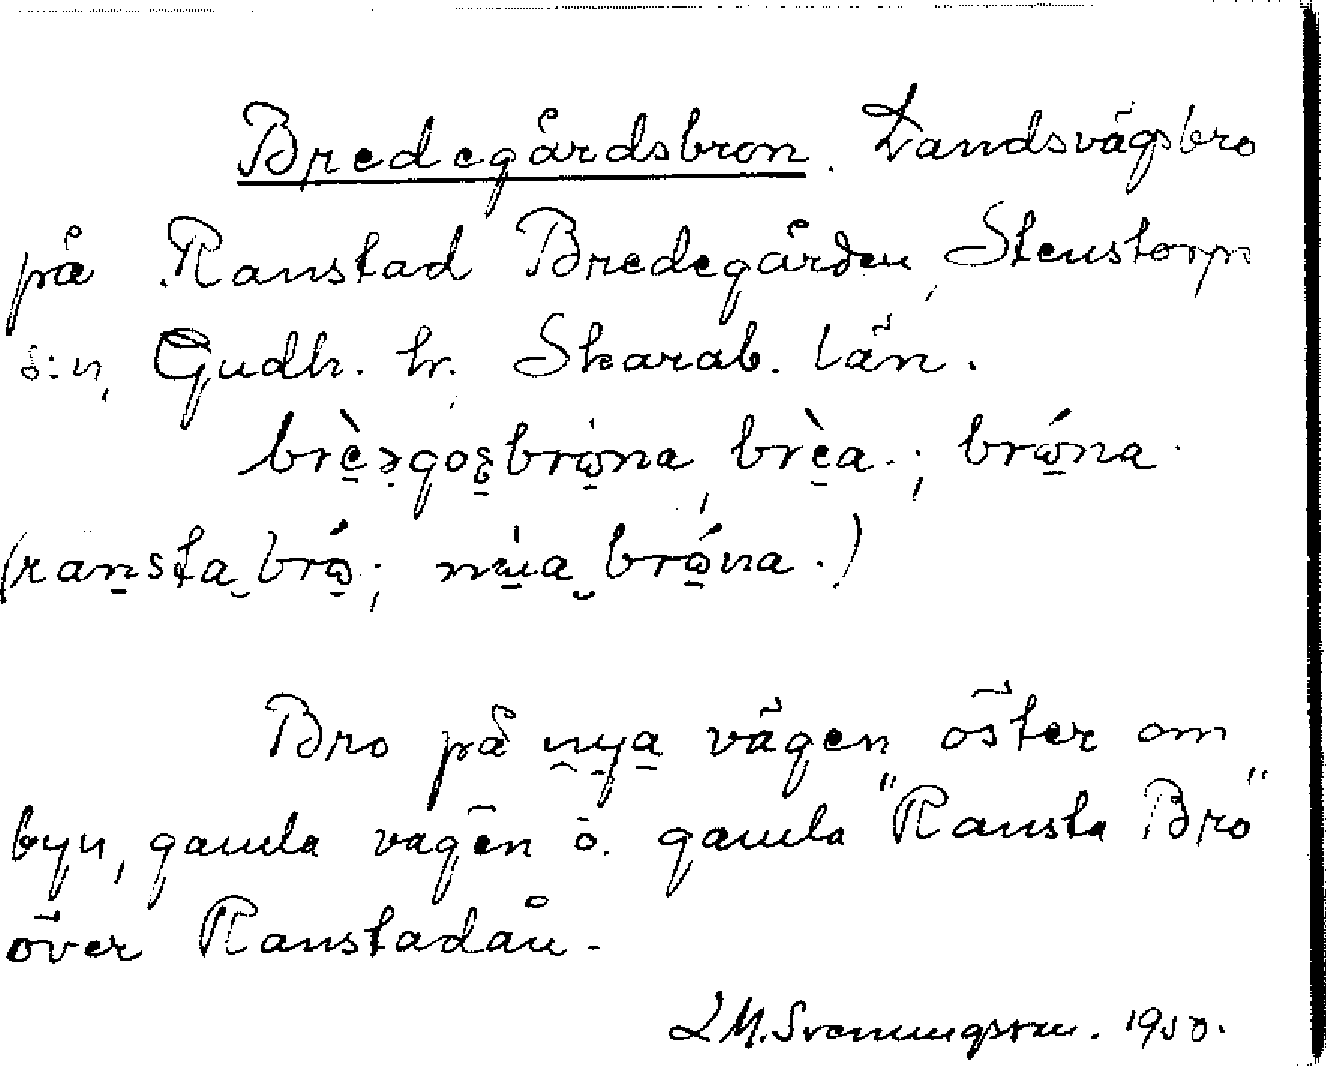 Bredegårdsbron. Landsvägsbro
på Ranstad Bredegården, Stenstorps
s:n, Gudh. hr. Skarab. län.
brèəgoʂbrω̇na, brèa-; brώna.
(ransta brώ; nùa brώna.)
Bro på nya vägen öster om
byn, gamla vägen ö. gamla "Ransta Bro"
över Ranstadån.
L M. Svenungsson. 1950.